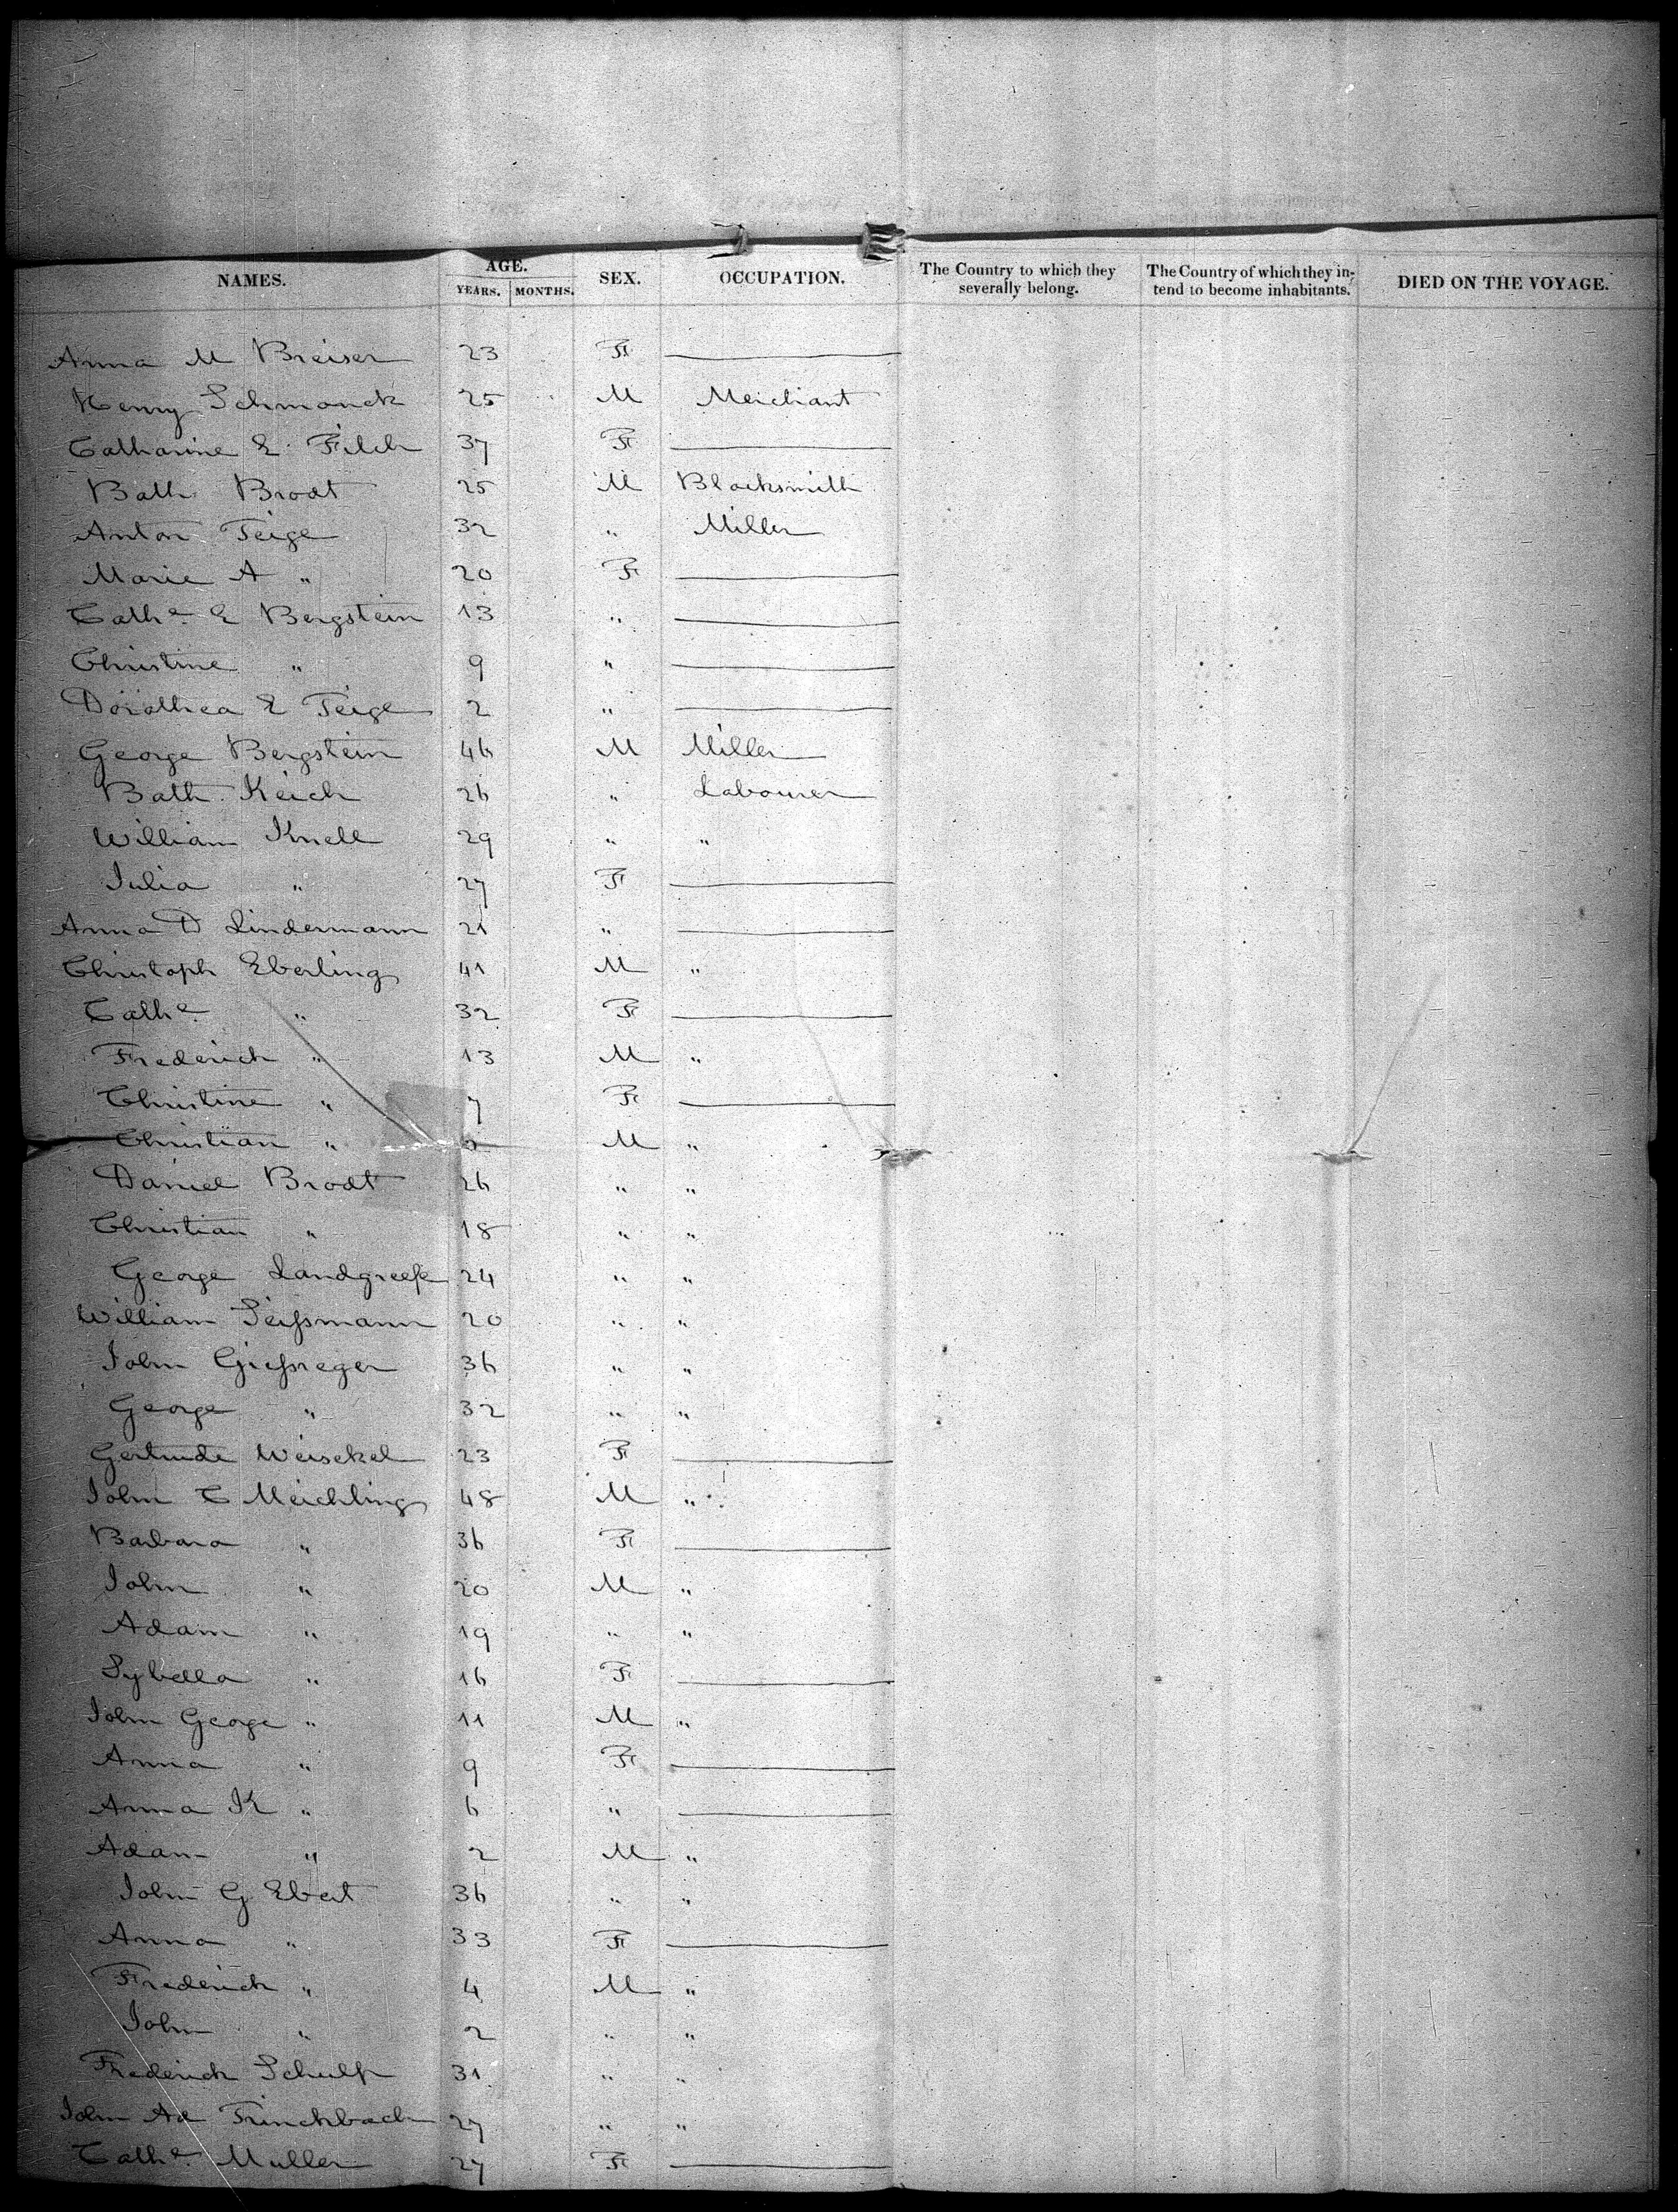 NAMES. AGE. YEARS. MONTHS. SEX. OCCUPATION. The Country to which they severally belong. The Country of which they intend to become inhabitants. DIED ON THE VOYAGE.
Anna M Breiser 23 F
Henry Schmonck 25 M Merchant
Catharine E. Filch 37 F
Balth Brodt 25 M Blacksmith
Anton Teige 32 " Miller
Marie A " 20 F
Cathe E Bergstein 13 "
Christine " 9 "
Dorothea E Teige 2 "
George Bergstein 46 M Miller
Balth. Keich 26 " Labourer
William Knell 29 " "
Julia " 27 F
Anna D Lindermann 21 "
Christoph Eberling 41 M "
Cathe " 32 F
Frederich " 13 M "
Christine " 7 F
Christian " M "
Daniel Brodt 26 " "
Christian " 18 " "
George Landgreefe 24 " "
William Seissmann 20 " "
John Giessreger 36 " "
George " 32 " "
Gertrude Weisckel 23 F
John C Meichling 48 M "
Barbara " 36 F
John " 20 M "
Adam " 19 " "
Sybella " 16 F
John George " 11 M "
Anna " 9 F
Anna K " 6 "
Adam " 2 M "
John G Ebert 36 " "
Anna " 33 F
Frederich " 4 M "
John " 2 " "
Frederich Schultz 31 " "
John Ad Trinckbach 27 " "
Cathe Muller 27 F